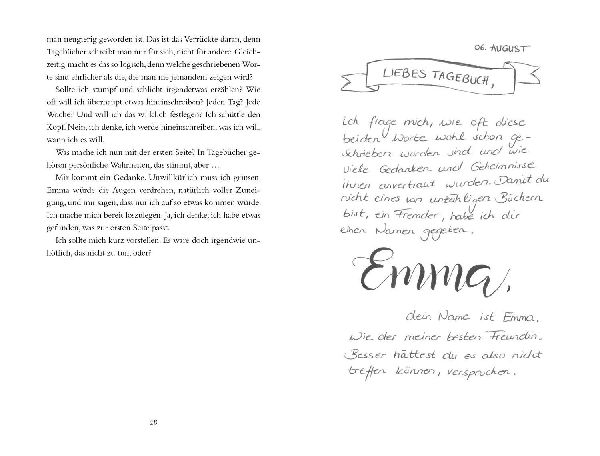 man neugierig geworden ist. Das ist das Verrückte daran, denn
Tagebücher schreibt man nur für sich, nicht für andere. Gleich-
zeitig macht es das so logisch, denn welche geschriebenen Wor-
te sind ehrlicher als die, die man niemandem zeigen wird?
Sollte ich stumpf und schlicht irgendetwas erzählen? Wie
oft will ich überhaupt etwas hineinschreiben? Jeden Tag? Jede
Woche? Und will ich das wirklich festlegen? Ich schüttle den
Kopf. Nein, ich denke, ich werde hineinschreiben, was ich will,
wann ich es will.
Was mache ich nun mit der ersten Seite? In Tagebücher ge-
hören persönliche Wahrheiten, das stimmt, aber …
Mir kommt ein Gedanke. Unwillkürlich muss ich grinsen.
Emma würde die Augen verdrehen, natürlich voller Zunei-
gung, und mir sagen, dass nur ich auf so etwas kommen würde.
Ich mache mich bereit loszulegen. Ja, ich denke, ich habe etwas
gefunden, was zur ersten Seite passt.
Ich sollte mich kurz vorstellen. Es wäre doch irgendwie un-
höflich, das nicht zu tun, oder?
06. AUGUST
LIEBES TAGEBUCH,
ich frage mich, wie oft diese
beiden Worte wohl schon ge-
schrieben wurden und und wie
viele Gedanken und Geheimnisse
ihnen anvertraut wurden. Damit du
nicht eines von unzähligen Büchern
bist, ein Fremder, habe ich dir
einen Namen gegeben.
Emma,
dein Name ist Emma.
Wie der meiner besten Freundin.
Besser hättest du es also nicht
treffen können, versprochen.